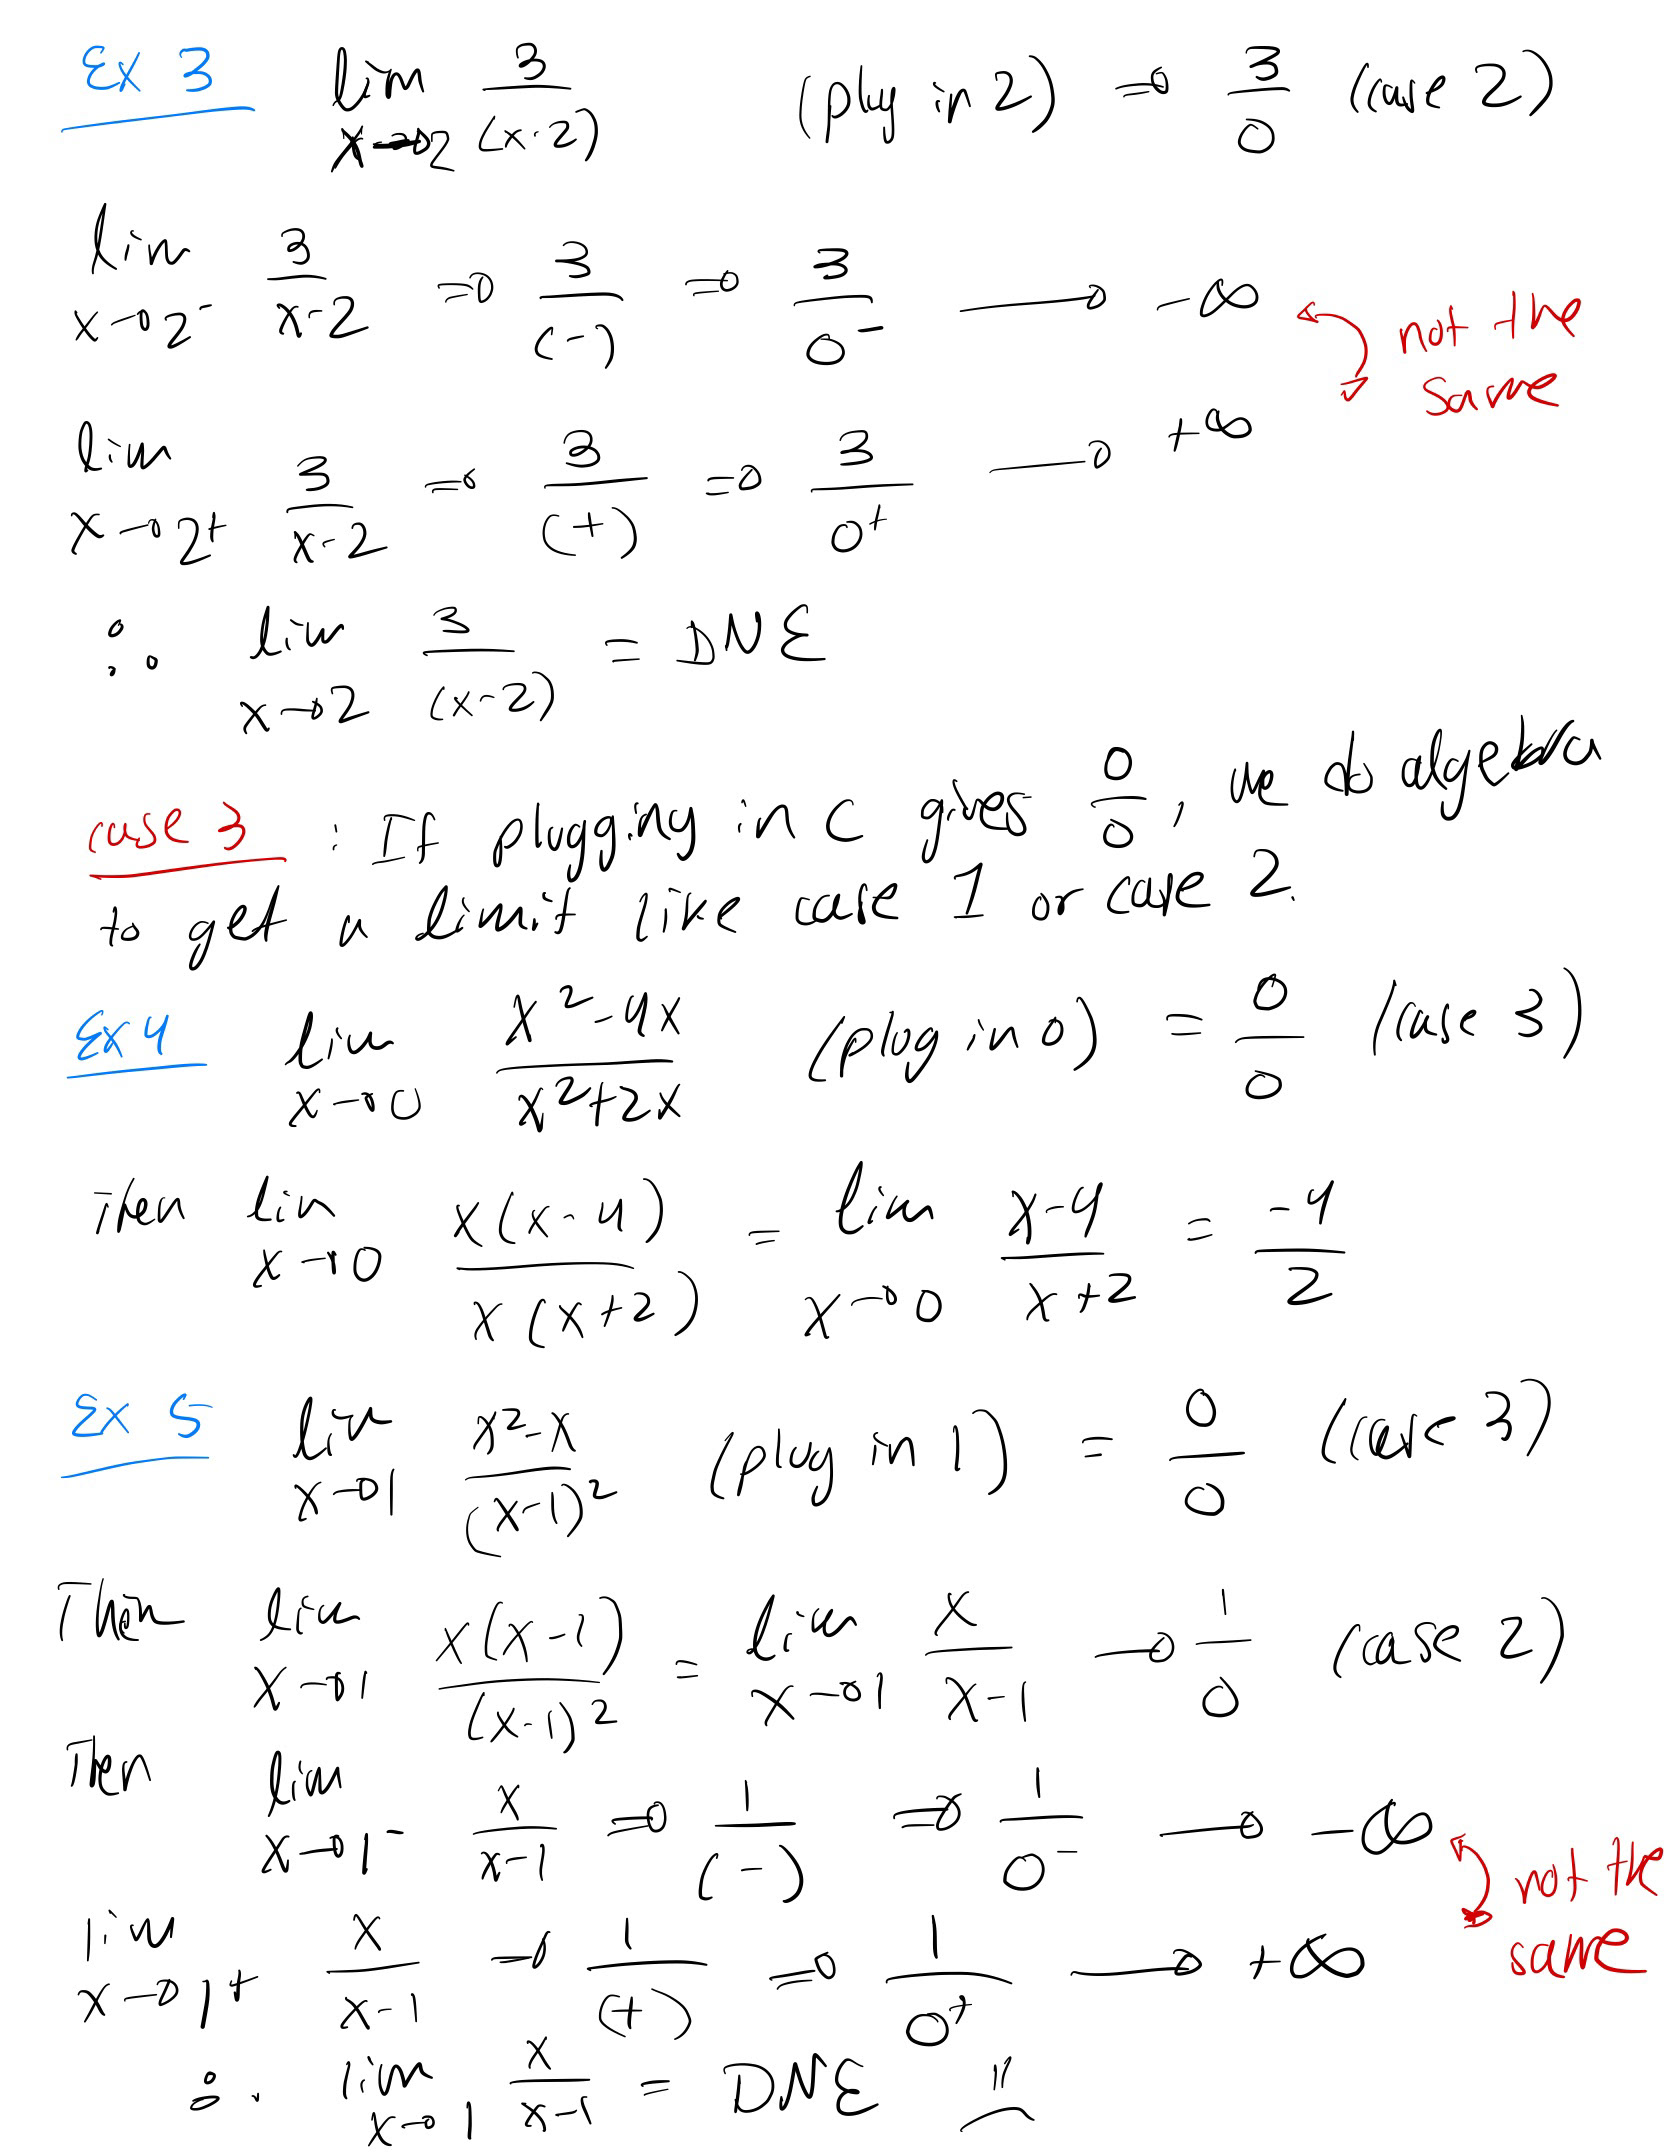 Ex 3 lim x→2 3/(x-2) (plug in 2) ⇒ 3/0 (case 2)
lim x→2⁻ 3/x-2 ⇒ 3/(-) ⇒ 3/0⁻ → -∞ not the same
lim x→2+ 3/x-2 ⇒ 3/(+) ⇒ 3/0⁺ → +∞
∴ lim x→2 3/(x-2) = DNE
case 3 : If plugging in c gives 0/0, we do algebra
to get a limit like case 1 or case 2.
Ex 4 lim x→0 x²-4x/x²+2x (plug in 0) = 0/0 (case 3)
Then lim x→0 x(x-4)/x(x+2) = lim x→0 x-4/x+2 = -4/2
Ex 5 lim x→1 x²-x/(x-1)² (plug in 1) = 0/0 (case 3)
Then lim x→1 x(x-1)/(x-1)² = lim x→1 x/x-1 → 1/0 (case 2)
Then lim x→1⁻ x/x-1 ⇒ 1/(-) ⇒ 1/0⁻ → -∞ not the same
lim x→1+ x/x-1 ⇒ 1/(+) ⇒ 1/0⁺ → +∞
∴ lim x→1 x/x-1 = DNE